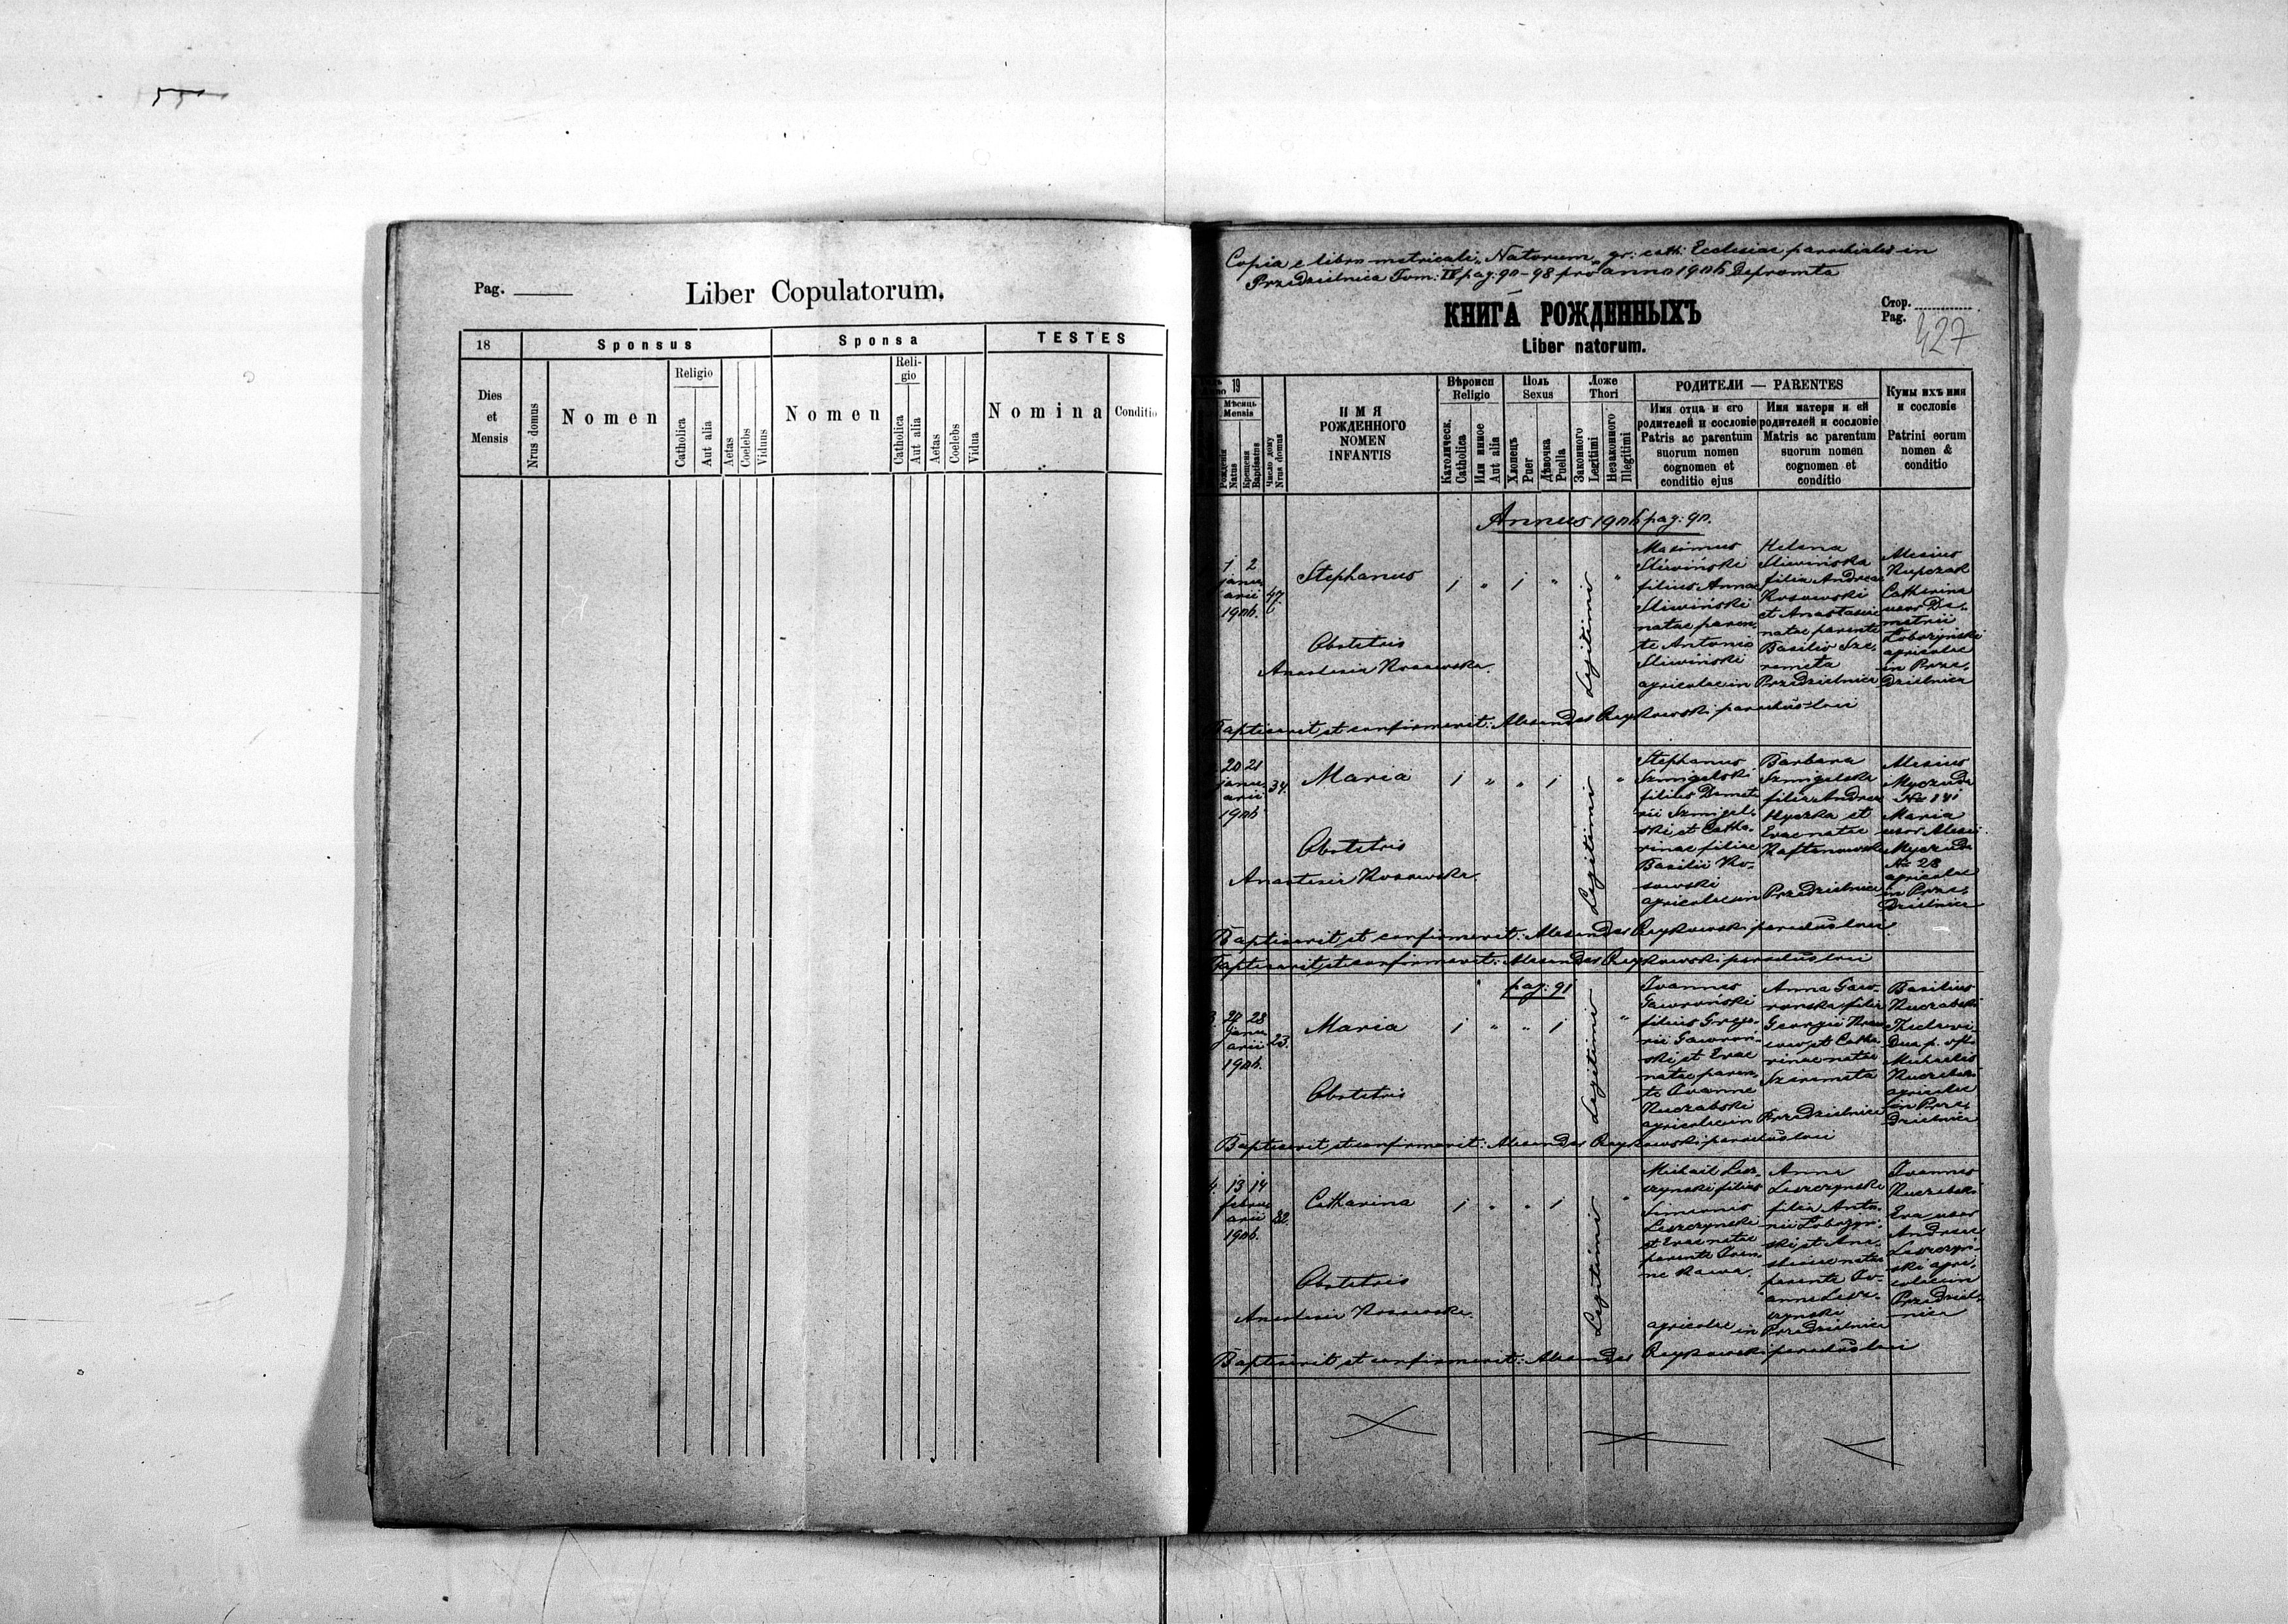 Pag.
Liber Copulatorum.
18
Sponsus
Sponsa
TESTES
Dies
et
Mensis
Nrus domus
Nomen
Religio
Catholica
Aut alia
Aetas
Coelebs
Viduus
Nomen
Reli-
gio
Catholica
Aut alia
Aetas
Coelebs
Vidua
Nomina
Conditio
Copia e libro metricali "Natorum" gr: cath: Ecclesiae parochialis in
Przedzielnica Tom: IV pag: 90-98 pro anno 1906 depromta
КНИГА РОЖДЕННЫХЪ
Liber natorum.
Стор.
Pag.
427
19
Мѣсяць
Mensis
Рожденія
Natus
Крещенія
Baptisatus
Число дому
Nrus domus
ИМЯ
РОЖДЕННОГО
NOMEN
INFANTIS
Вѣроисп
Religio
Католическ.
Catholica
Или инное
Aut alia
Полъ
Sexus
Хлопецъ
Puer
Дѣвочка
Puella
Ложе
Thori
Законного
Legitimi
Незаконного
Illegitimi
РОДИТЕЛИ — PARENTES
Имя отца и его
родителей и сословіе
Patris ac parentum
suorum nomen
cognomen et
conditio ejus
Имя матери и ей
родителей и сословіе
Matris ac parentum
suorum nomen
cognomen et
conditio
Кумы ихъ имя
и сословіе
Patrini eorum
nomen &
conditio
Annus 1906 pag: 90.
1 2
janu
arii
1906.
47.
Stephanus
1 " 1 " Legitimi "
Obstetrix
Anastasia Kossowska.
Maximus
Sliwiński
filius Annae
Sliwiński
natae paren-
te Antonio
Sliwiński
agricolae in
Helena
Sliwińska
filia Andreae
Kossowski
et Anastasiae
natae parente
Basilio Sze-
remeta
Przedzielnica
Alexius
Kupczak
Catharina
uxor De-
metrii
Łobozyński
agricolae
in Prze-
dzielnica
Baptisavit et confirmavit: Alexander parochus loci
20 21
janu
arii
1906
34.
Maria
1 " " 1 Legitimi "
Obstetrix
Anastasia Kossowska.
Stephanus
Szmigelski
filius Demet
rii Szmigel-
ski et Catha-
rinae filiae
Basilii Ko-
sowski
agricolae in
Barbara
Szmigelska
filia Andreae
Hyczka et
Evae natae
Przedzielnica
Alexius
Myczuda
Maria
uxor Alexii
Myczuda
No 28
agricolae
in Prze-
dzielnica
Baptisavit et confirmavit: Alexander parochus loci.
Baptisavit et confirmavit: Alexander parochus loci
pag: 91
3.
27 28
janu
arii
1906.
23.
Maria
1 " " 1 Legitimi "
Obstetrix
Joannes
Gawroński
filius Grego-
rii Gawron-
ski et Evae
natae paren-
te Joanne
Kuczabski
agricolae in
Anna Gaw-
ronska filia
Georgii
et Catha
rinae natae
Szeremeta
Przedzielnica
Basilius
Kuczabski
Thecla vi-
dua p.
Michaelis
Kuczabski
agricolae
in Prze-
dzielnica
Baptisavit et confirmavit: Alexander parochus loci
4.
13 14
febru
arii
1906.
22.
Catharina
1 " " 1 Legitimi "
Obstetrix
Anastasia Kossowska.
Michail Lesz-
czynski filius
Simeonis
Leszczynski
et Evae natae
parente Joan-
ne Kawa.
agricolae in
Anna
Leszczynski
filia Anto-
nii Łobozyn-
ski et Ana-
stasiae natae
parente Jo-
anne Lesz-
czynski
Przedzielnica
Joannes
Kuczabski
Eva uxor
Andreae
Leszczyn-
ski agri-
colae in
Przedziel-
nica
Baptisavit et confirmavit: Alexander parochus loci